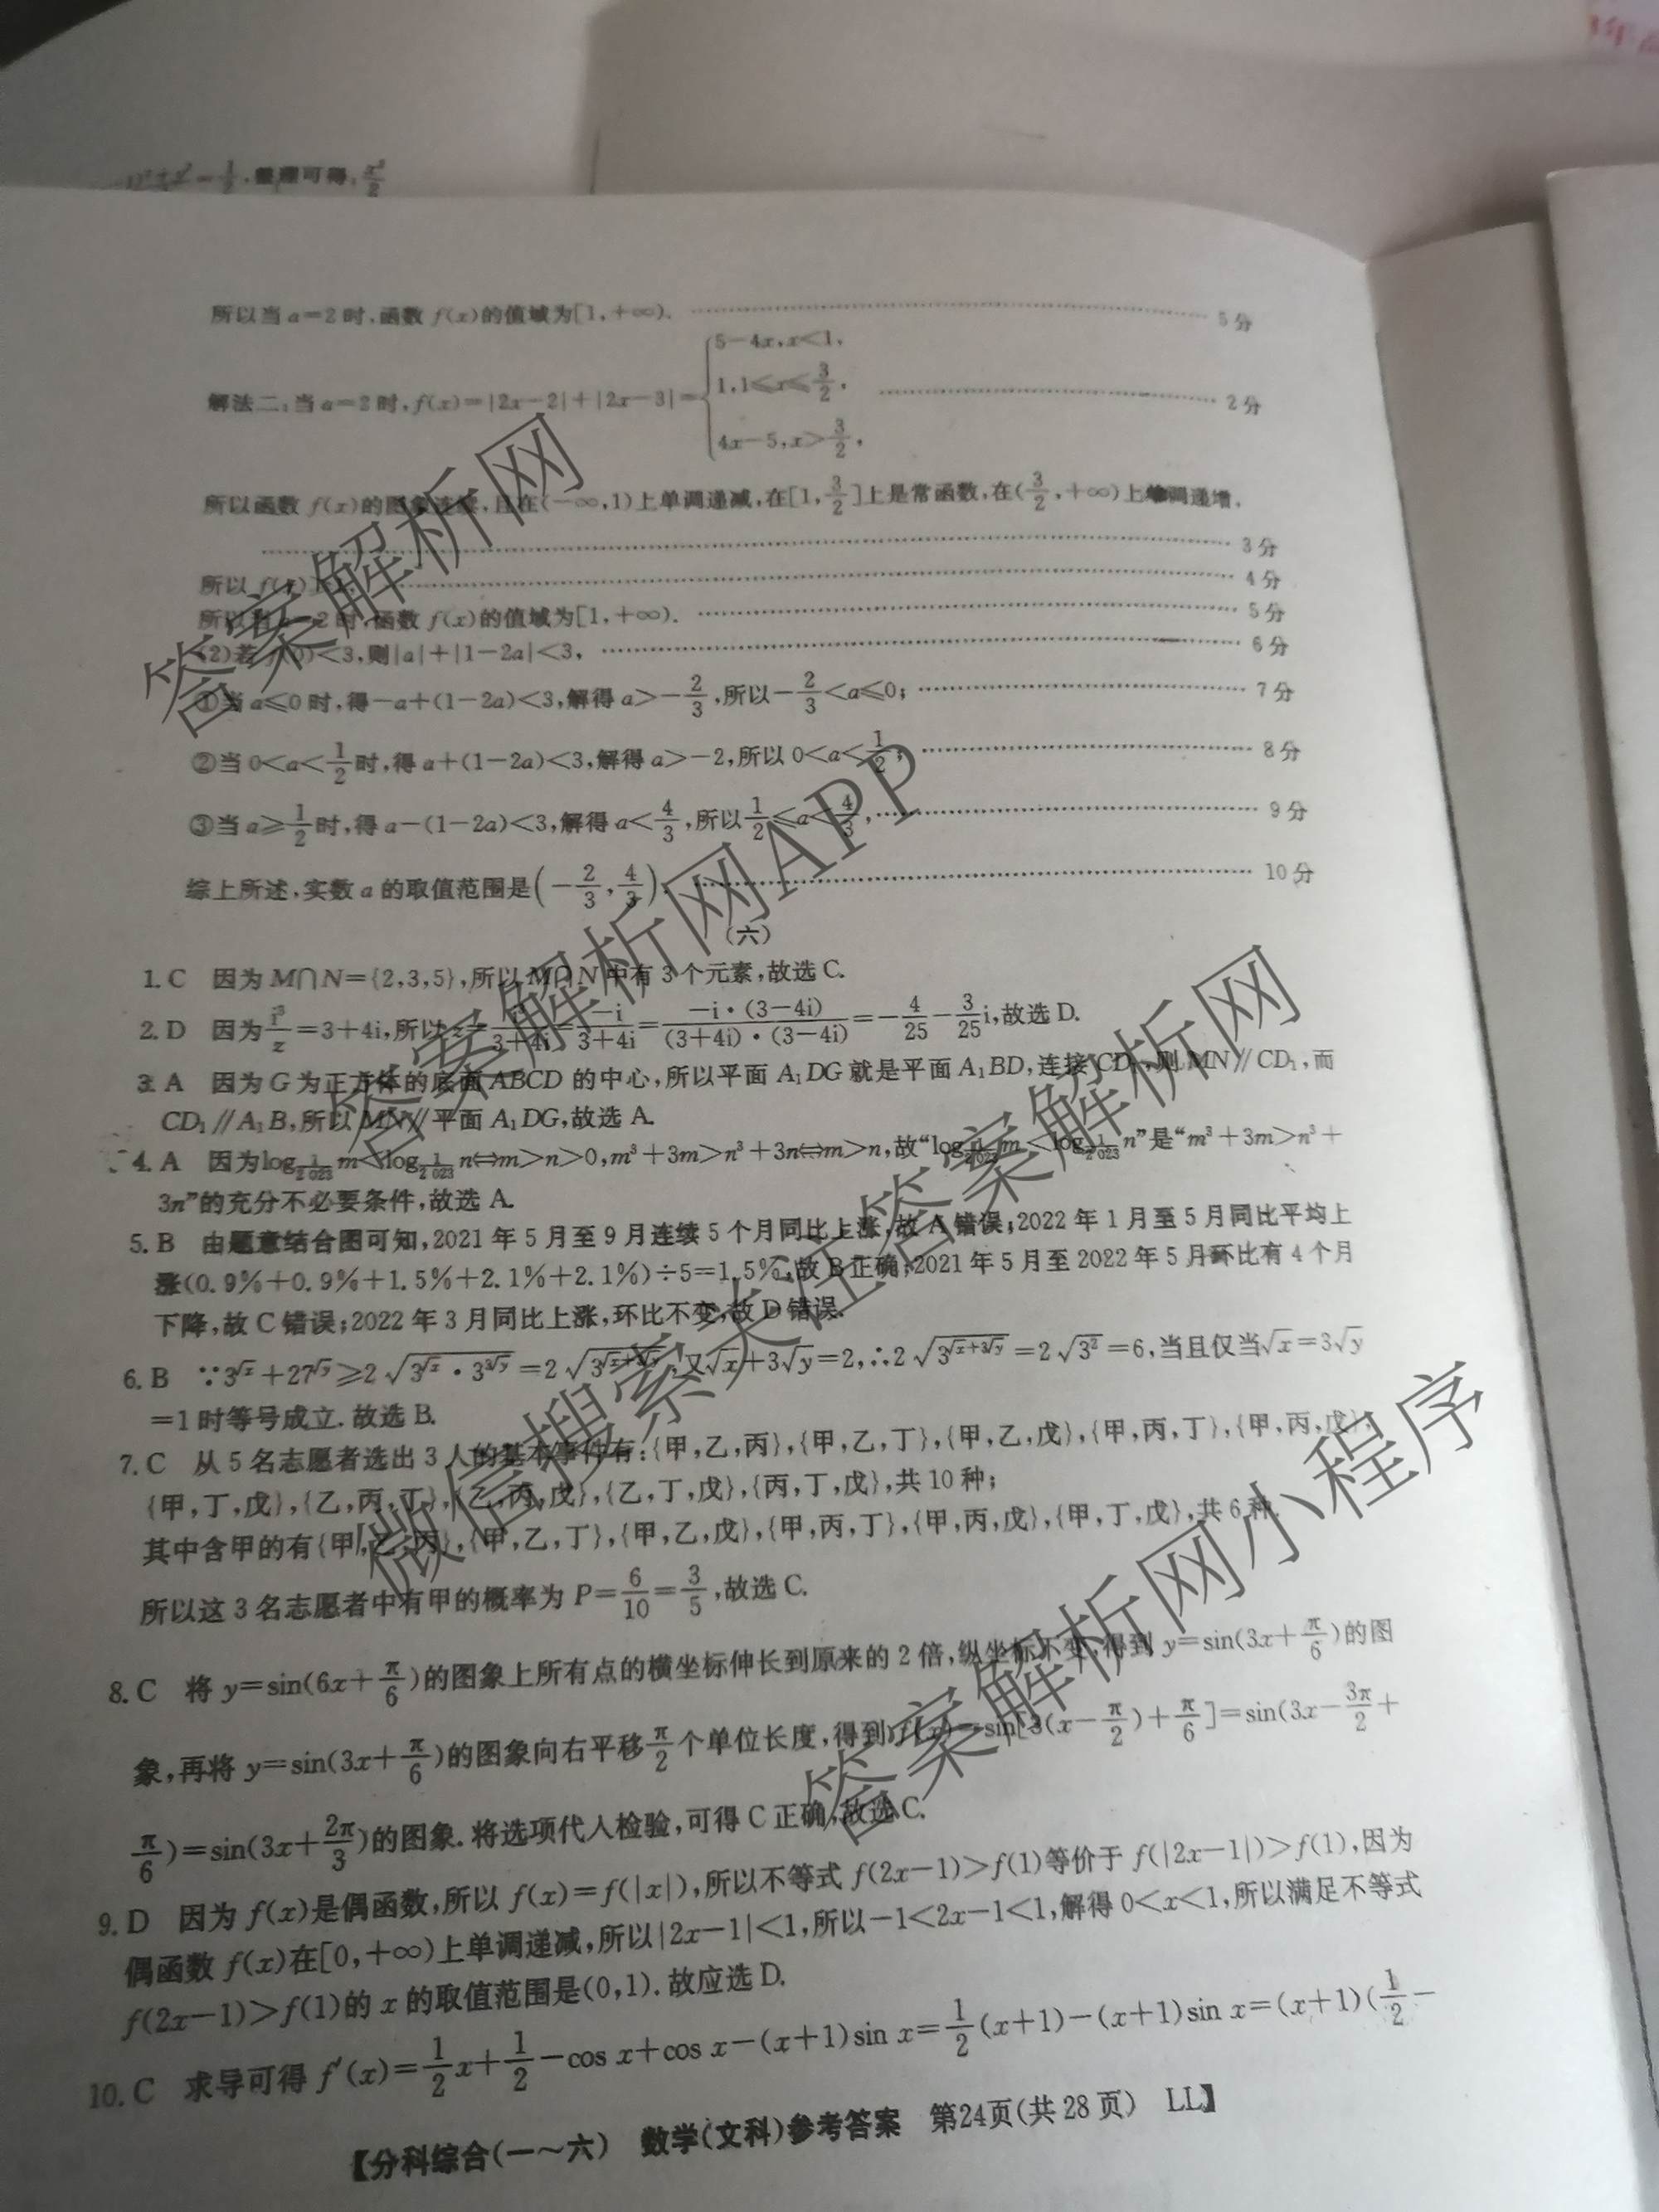 整理可得,
所以当a=2时,函数f(x)的值域为[1,+∞). 5分
解法二:当a=2时,f(x)=|2x-2|+|2x-3|={5-4x,x<1, 1,1≤x≤3/2, 4x-5,x>3/2, 2分
所以函数f(x)的图象连续,且在(-∞,1)上单调递减,在[1,3/2]上是常函数,在(3/2,+∞)上单调递增,
3分
所以f(x) 4分
所以当 2时,函数f(x)的值域为[1,+∞). 5分
(2)若 <3,则|a|+|1-2a|<3, 6分
①当a≤0时,得-a+(1-2a)<3,解得a>-2/3,所以-2/3<a≤0; 7分
②当0<a<1/2时,得a+(1-2a)<3,解得a>-2,所以0<a<1/2; 8分
③当a≥1/2时,得a-(1-2a)<3,解得a<4/3,所以1/2≤a<4/3, 9分
综上所述,实数a的取值范围是(-2/3,4/3). 10分
(六)
1. C 因为M∩N={2,3,5},所以M∩N中有3个元素,故选C.
2. D 因为i³/z=3+4i,所以z=i³/(3+4i)=-i/(3+4i)=-i·(3-4i)/((3+4i)·(3-4i))=-4/25-3/25i,故选D.
3. A 因为G为正方体的底面ABCD的中心,所以平面A₁DG就是平面A₁BD,连接CD₁,则MN∥CD₁,而
CD₁∥A₁B,所以MN∥平面A₁DG,故选A.
4. A 因为log_(1/2 023)m<log_(1/2 023)n⇔m>n>0,m³+3m>n³+3n⇔m>n,故“log_(1/2 023)m<log_(1/2 023)n”是“m³+3m>n³+
3n”的充分不必要条件,故选A.
5. B 由题意结合图可知,2021年5月至9月连续5个月同比上涨,故A错误;2022年1月至5月同比平均上
涨(0.9%+0.9%+1.5%+2.1%+2.1%)÷5=1.5%,故B正确;2021年5月至2022年5月环比有4个月
下降,故C错误;2022年3月同比上涨,环比不变,故D错误.
6. B ∵3^√x+27^√y≥2√(3^√x·3^(3√y))=2√(3^(√x+3√y)),又√x+3√y=2,∴2√(3^(√x+3√y))=2√(3²)=6,当且仅当√x=3√y
=1时等号成立.故选B.
7. C 从5名志愿者选出3人的基本事件有:{甲,乙,丙},{甲,乙,丁},{甲,乙,戊},{甲,丙,丁},{甲,丙,戊},
{甲,丁,戊},{乙,丙,丁},{乙,丙,戊},{乙,丁,戊},{丙,丁,戊},共10种;
其中含甲的有{甲,乙,丙},{甲,乙,丁},{甲,乙,戊},{甲,丙,丁},{甲,丙,戊},{甲,丁,戊},共6种,
所以这3名志愿者中有甲的概率为P=6/10=3/5,故选C.
8. C 将y=sin(6x+π/6)的图象上所有点的横坐标伸长到原来的2倍,纵坐标不变,得到y=sin(3x+π/6)的图
象,再将y=sin(3x+π/6)的图象向右平移π/2个单位长度,得到f(x)=sin[3(x-π/2)+π/6]=sin(3x-3π/2+
π/6)=sin(3x+2π/3)的图象.将选项代入检验,可得C正确,故选C.
9. D 因为f(x)是偶函数,所以f(x)=f(|x|),所以不等式f(2x-1)>f(1)等价于f(|2x-1|)>f(1),因为
偶函数f(x)在[0,+∞)上单调递减,所以|2x-1|<1,所以-1<2x-1<1,解得0<x<1,所以满足不等式
f(2x-1)>f(1)的x的取值范围是(0,1).故应选D.
10. C 求导可得f′(x)=1/2x+1/2-cos x+cos x-(x+1)sin x=1/2(x+1)-(x+1)sin x=(x+1)(1/2-
【分科综合(一~六) 数学(文科)参考答案 第24页(共28页) LL】
答案解析网
答案解析网APP
微信搜索关注答案解析网
答案解析网小程序